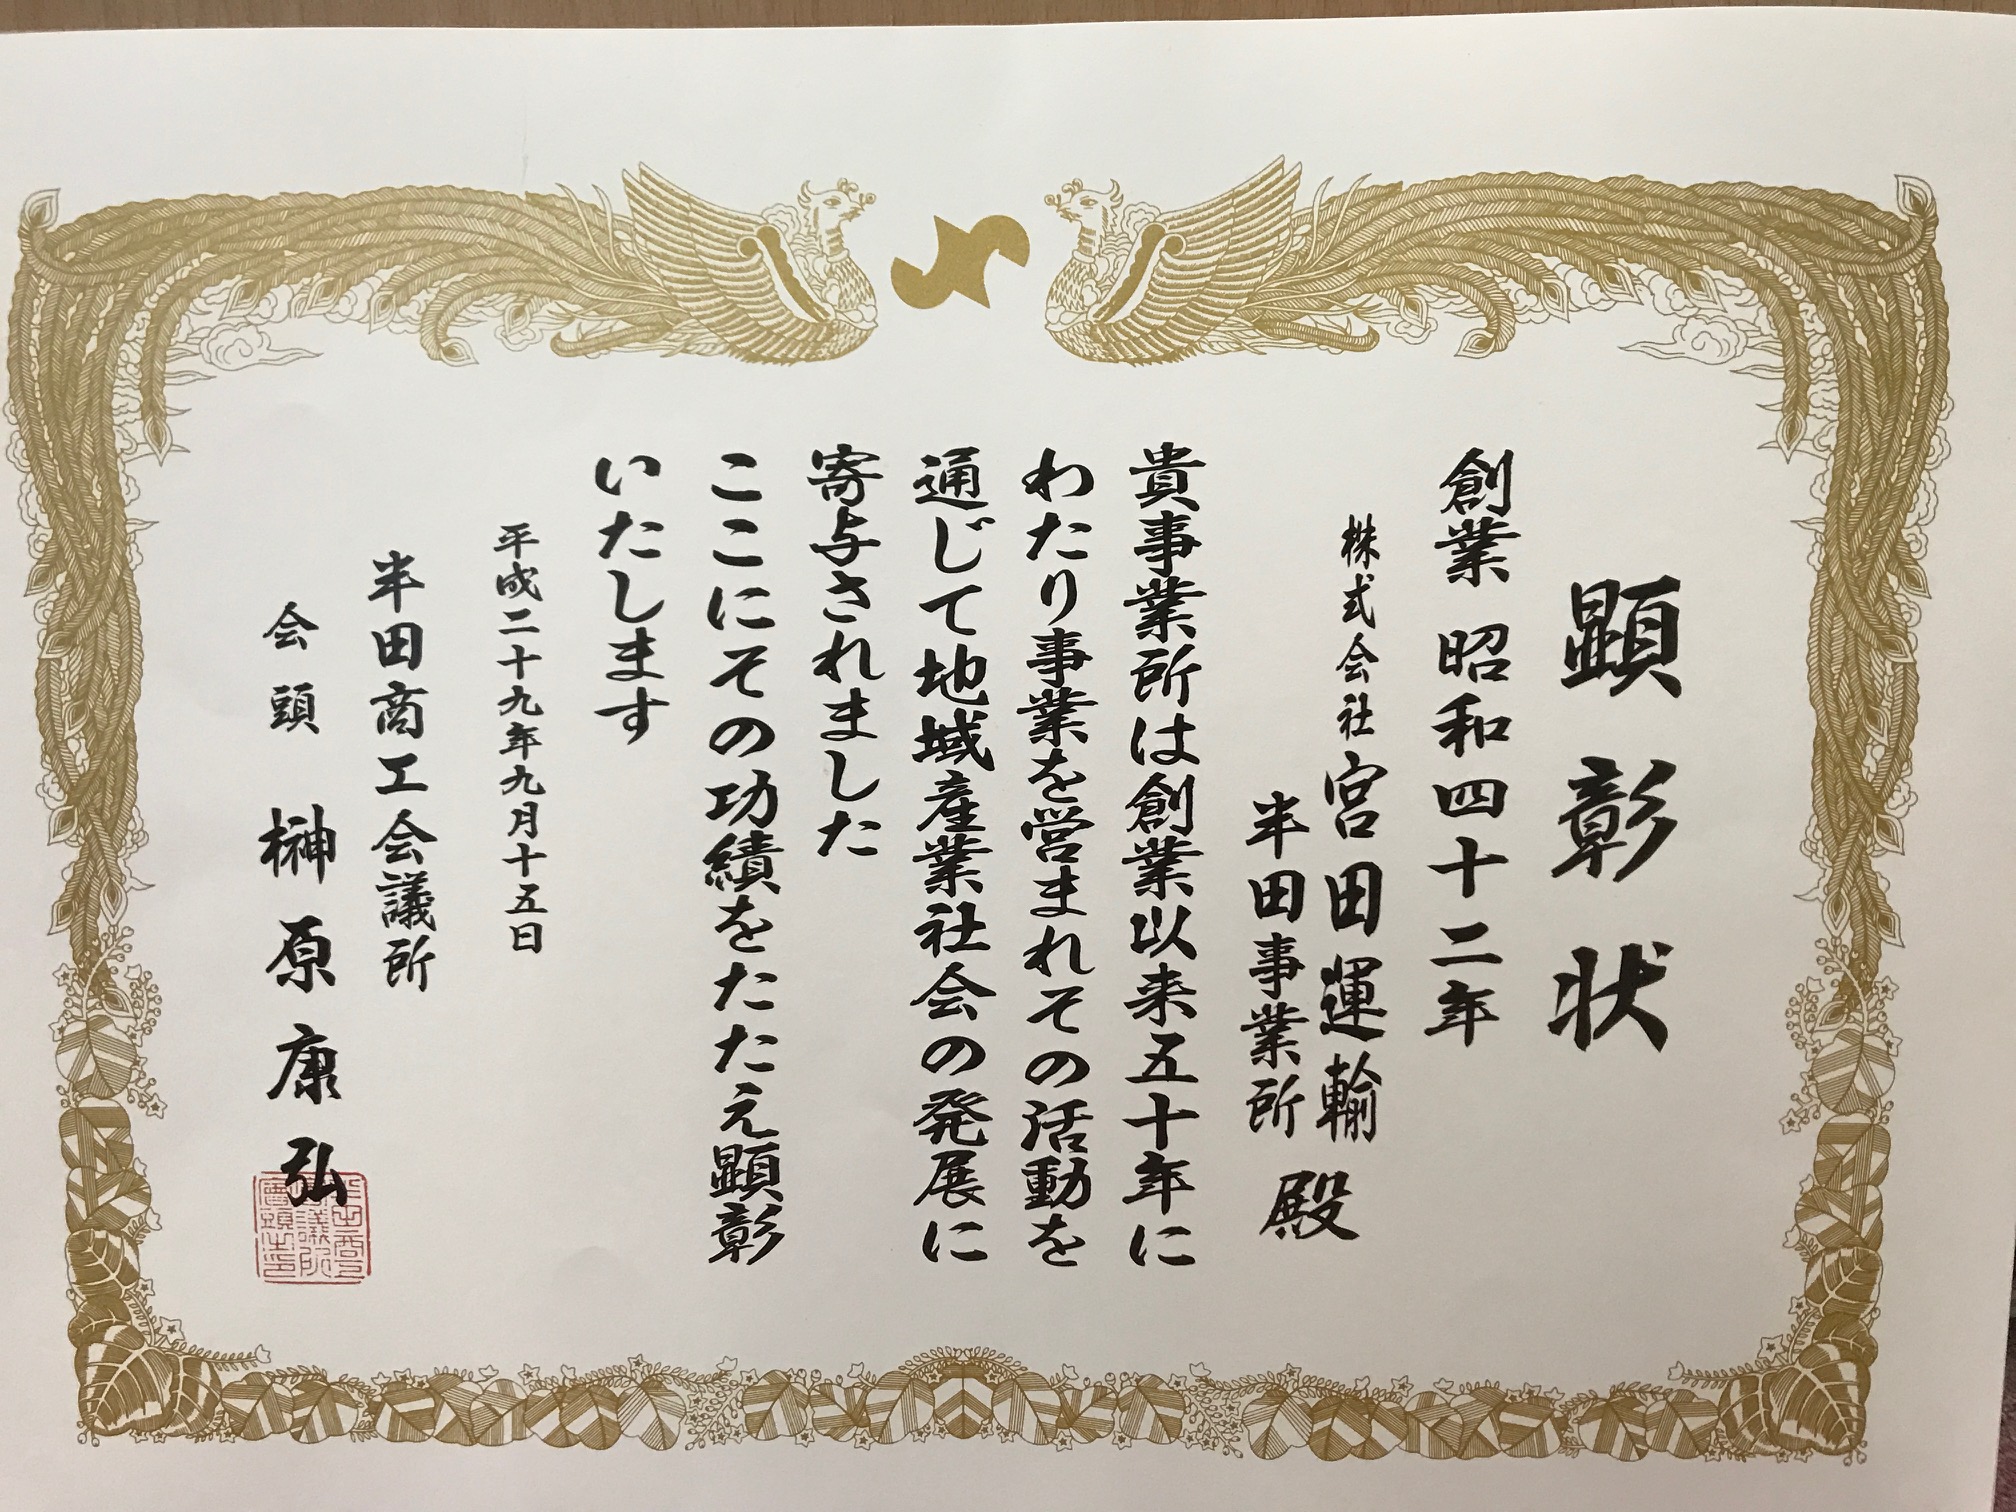 顕彰状
創業 昭和四十二年
株式会社 宮田運輸
半田事業所 殿
貴事業所は創業以来五十年に
わたり事業を営まれその活動を
通じて地域産業社会の発展に
寄与されました
ここにその功績をたたえ顕彰
いたします
平成二十九年九月十五日
半田商工会議所
会頭 榊原康弘